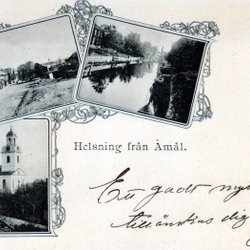 Helsning från Åmål.
Ett godt nytt
tillönskas dig